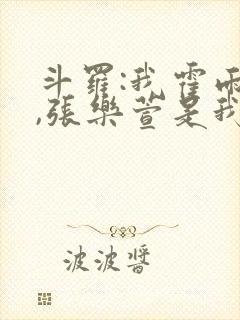 斗羅:我霍雨
,張樂萱是我
波波醬